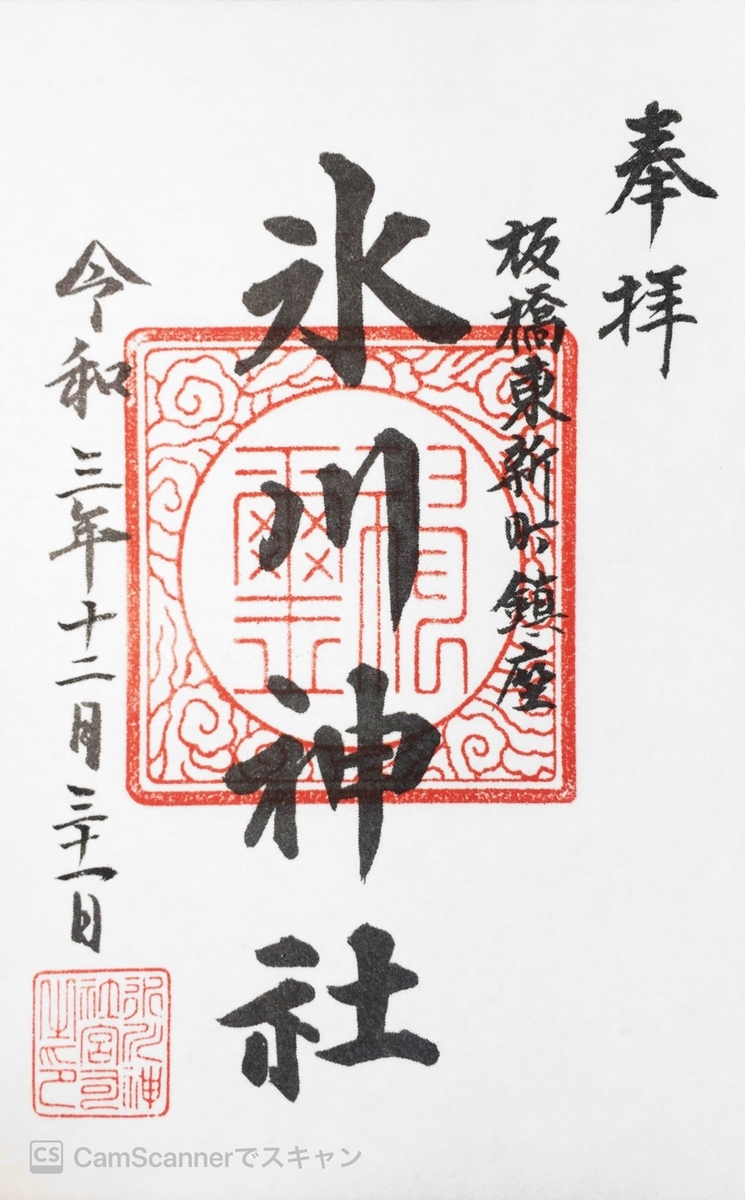 奉拝
板橋東新町鎮座
氷川神社
令和三年十二月三十一日
氷川神
社宮司
之印
CS CamScannerでスキャン